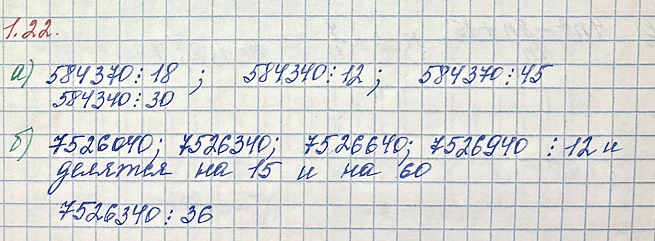 1.22.
а) 584370 ⋮ 18 ; 584340 ⋮ 12 ; 584370 ⋮ 45
584340 ⋮ 30
б) 7526040; 7526340; 7526640; 7526940 ⋮ 12 и
делятся на 15 и на 60
7526340 ⋮ 36